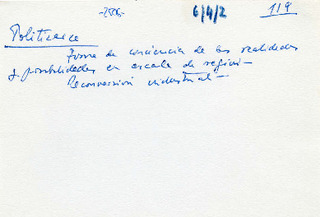 -2806-
6/4/2
119
Politica
Toma de conciencia de las realidades
y posibilidades en escala de region -
Reconversión industrial -